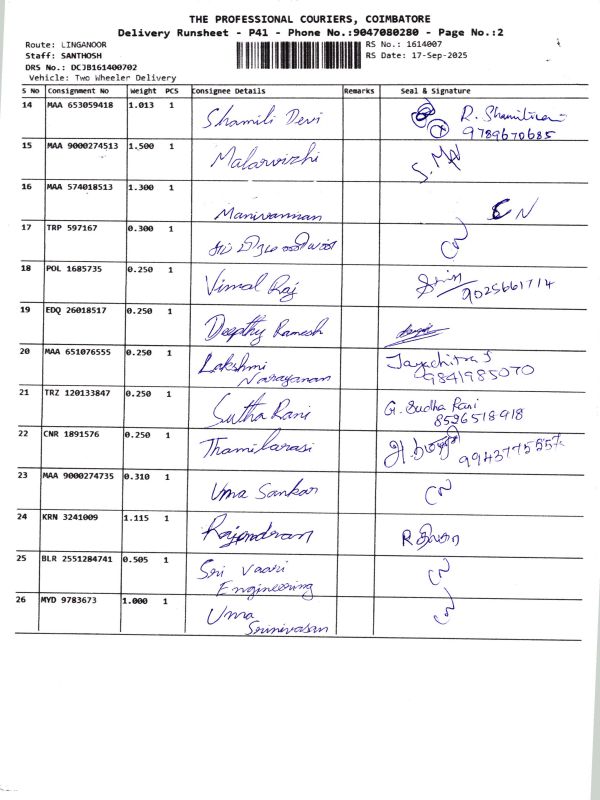 THE PROFESSIONAL COURIERS, COIMBATORE
Delivery Runsheet - P41 - Phone No.:9047080280 - Page No.:2
Route: LINGANOOR RS No.: 1614007
Staff: SANTHOSH RS Date: 17-Sep-2025
DRS No.: DCJB161400702
Vehicle: Two Wheeler Delivery
S No Consignment No Weight PCS Consignee Details Remarks Seal & Signature
14 MAA 653059418 1.013 1 Shamili Devi
9789670685
15 MAA 9000274513 1.500 1 Malarvizhi
16 MAA 574018513 1.300 1 Manivannan
17 TRP 597167 0.300 1
18 POL 1685735 0.250 1 Vimal Raj 9025661714
19 EDQ 26018517 0.250 1 Deepthy Ramesh
20 MAA 651076555 0.250 1 Lakshmi Narayanan Jayachitra S
9841985070
21 TRZ 120133847 0.250 1 Sutha Rani G. Sudha Rani
8526518918
22 CNR 1891576 0.250 1 Thamilarasi
23 MAA 9000274735 0.310 1 Uma Sankar
24 KRN 3241009 1.115 1 Rajendran
25 BLR 2551284741 0.505 1 Sri Vaari
Engineering
26 MYD 9783673 1.000 1 Uma
Srinivasan